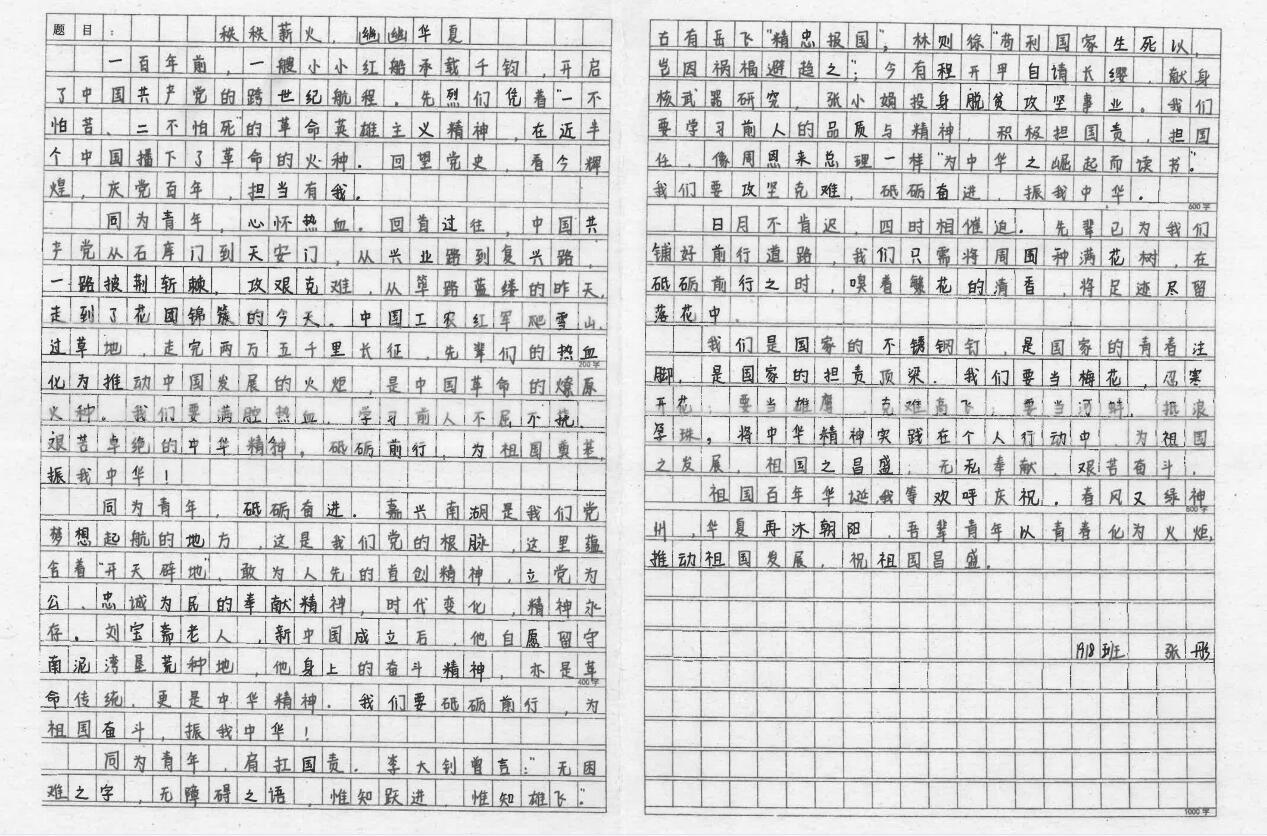 题目： 秩秩薪火，幽幽华夏
一百年前，一艘小小红船承载千钧，开启
了中国共产党的跨世纪航程。先烈们凭着“一不
怕苦、二不怕死”的革命英雄主义精神，在近半
个中国播下了革命的火种。回望党史，看今辉
煌，庆党百年，担当有我。
同为青年，心怀热血。回首过往，中国共
产党从石库门到天安门，从兴业路到复兴路，
一路披荆斩棘，攻艰克难，从筚路蓝缕的昨天，
走到了花团锦簇的今天。中国工农红军爬雪山，
过草地，走完两万五千里长征，先辈们的热血
200字
化为推动中国发展的火炬，是中国革命的燎原
火种。我们要满腔热血，学习前人不屈不挠，
艰苦卓绝的中华精神。砥砺前行，为祖国奠基，
振我中华！
同为青年，砥砺奋进。嘉兴南湖是我们党
梦想起航的地方，这是我们党的根脉，这里蕴
含着“开天辟地，敢为人先的首创精神，立党为
公、忠诚为民的奉献精神，时代变化，精神永
存。刘宝斋老人，新中国成立后，他自愿留守
南泥湾垦荒种地，他身上的奋斗精神，亦是革
400字
命传统，更是中华精神。我们要砥砺前行，为
祖国奋斗，振我中华！
同为青年，肩扛国责。李大钊曾言：“无困
难之字，无障碍之语，惟知跃进，惟知雄飞。”
古有岳飞“精忠报国”，林则徐“苟利国家生死以，
岂因祸福避趋之”；今有程开甲自请长缨，献身
核武器研究，张小娟投身脱贫攻坚事业。我们
要学习前人的品质与精神，积极担国责，担国
任，像周恩来总理一样“为中华之崛起而读书”。
我们要攻坚克难，砥砺奋进，振我中华。
600字
日月不肯迟，四时相催迫。先辈已为我们
铺好前行道路，我们只需将周围种满花树，在
砥砺前行之时，嗅着繁花的清香，将足迹尽留
落花中。
我们是国家的不锈钢钉，是国家的青春注
脚，是国家的担责顶梁。我们要当梅花，忍寒
开花；要当雄鹰，克难高飞；要当河蚌，抵浪
孕珠。将中华精神实践在个人行动中，为祖国
之发展，祖国之昌盛，无私奉献，艰苦奋斗。
祖国百年华诞，我等欢呼庆祝。春风又绿神
800字
州，华夏再沐朝阳，吾辈青年以青春化为火炬，
推动祖国发展，祝祖国昌盛。
1918班 张彤
1000字